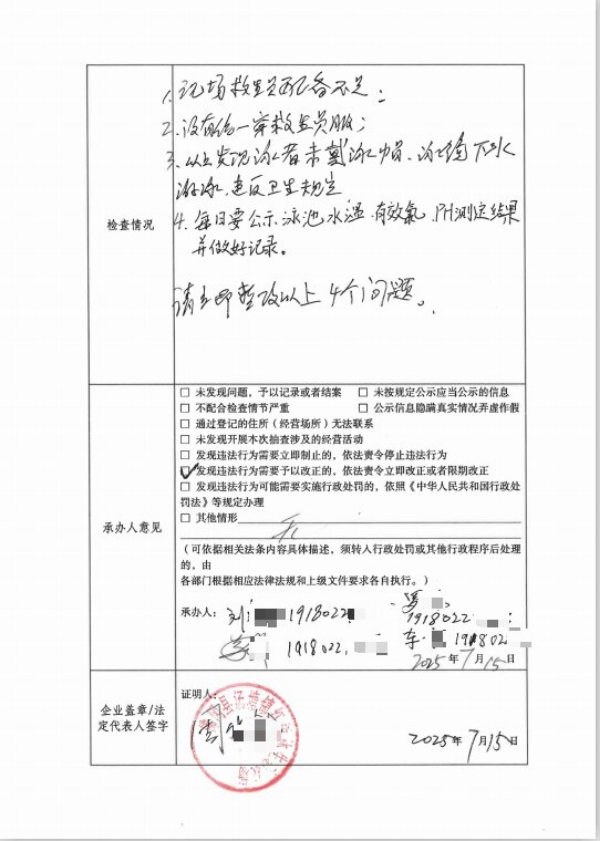 检查情况
1. 现场救生员配备不足；
2. 没有统一穿救生员服；
3. 以上发现泳者未戴泳帽、下水
游泳，违反卫生规定
4. 每日要公示泳池水温、有效氯、PH测定结果
并做好记录。
请立即整改以上4个问题。
承办人意见
□ 未发现问题，予以记录或者结案 □ 未按规定公示应当公示的信息
□ 不配合检查情节严重 □ 公示信息隐瞒真实情况弄虚作假
□ 通过登记的住所（经营场所）无法联系
□ 未发现开展本次抽查涉及的经营活动
□ 发现违法行为需要立即制止的，依法责令停止违法行为
☑ 发现违法行为需要予以改正的，依法责令立即改正或者限期改正
□ 发现违法行为可能需要实施行政处罚的，依照《中华人民共和国行政处
罚法》等规定办理
□ 其他情形 无
（可依据相关法条内容具体描述，须转入行政处罚或其他行政程序后处理
的，由
各部门根据相应法律法规和上级文件要求各自执行。）
承办人： 刘 1918022 罗
1918022
1918022 车 191802
2025年7月15日
企业盖章/法
定代表人签字
证明人：
2025年7月15日
县汤塘镇